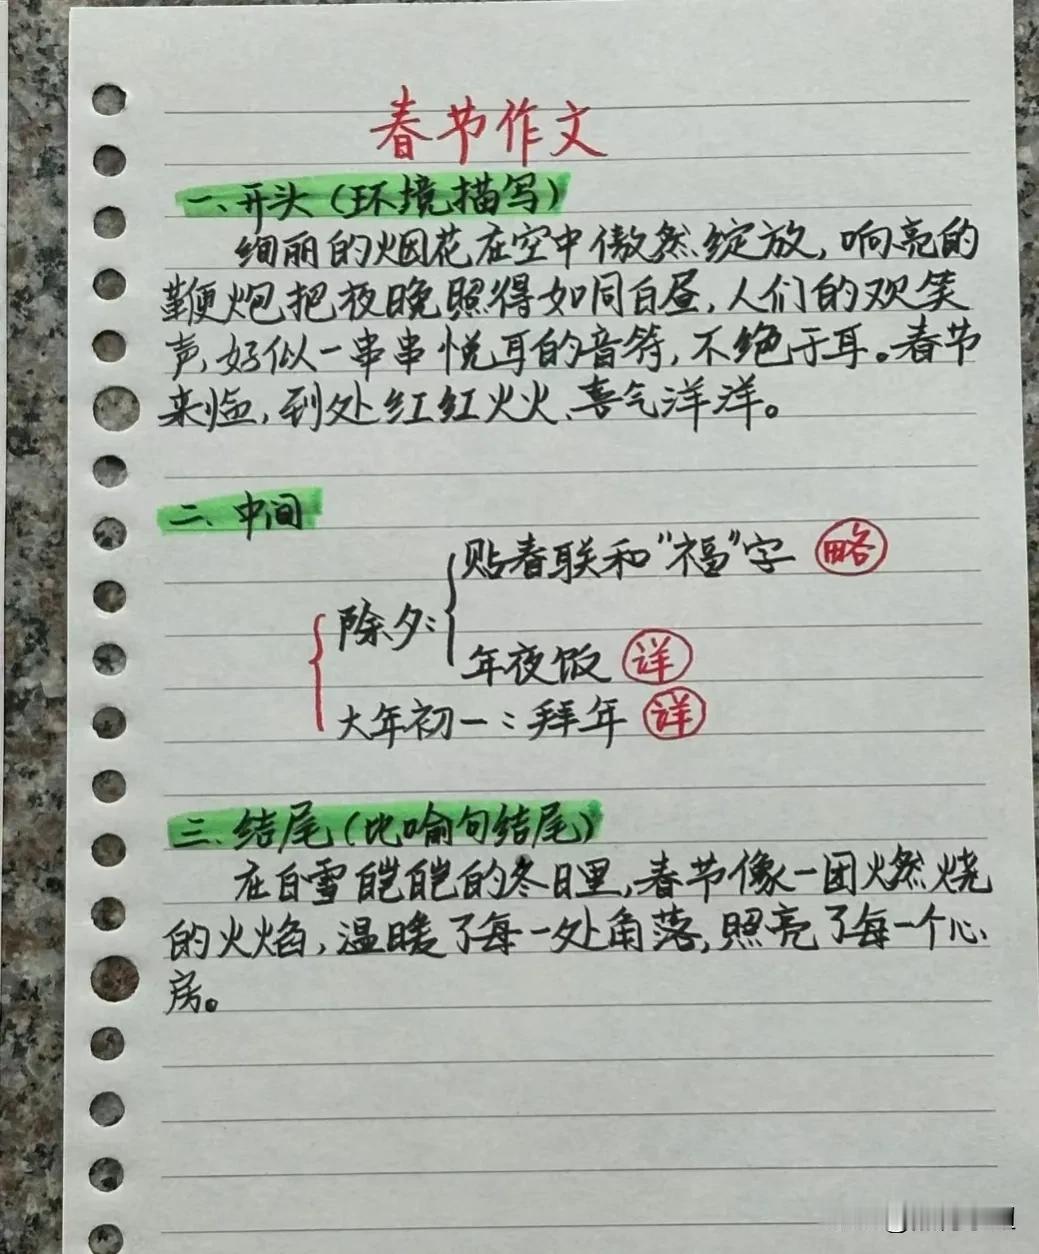 春节作文
一、开头(环境描写)
绚丽的烟花在空中傲然绽放,响亮的
鞭炮把夜晚照得如同白昼,人们的欢笑
声,好似一串串悦耳的音符,不绝于耳。春节
来临,到处红红火火、喜气洋洋。
二、中间
贴春联和“福”字 略
除夕:
年夜饭 详
大年初一:拜年 详
三、结尾(比喻句结尾)
在白雪皑皑的冬日里,春节像一团燃烧
的火焰,温暖了每一处角落,照亮了每一个心
房。